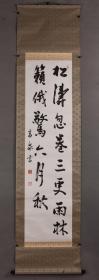 松濤忽卷三更雨林
籟俄驚六月秋